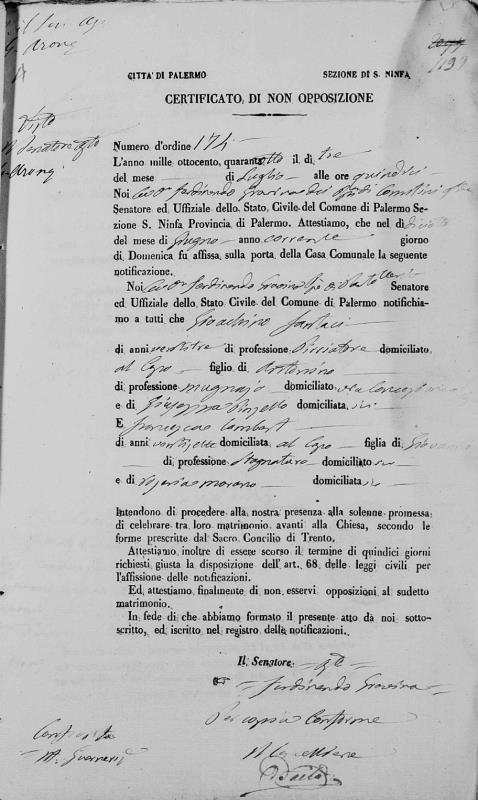 il Sen. 
Visto
Il Senatore ff.to
CITTA' DI PALERMO SEZIONE DI S. NINFA
199
CERTIFICATO DI NON OPPOSIZIONE
Numero d'ordine 174
L'anno mille ottocento, quarantotto il dì tre
del mese di Luglio alle ore quindici
Noi Cav.r Ferdinando Gravina dei
Senatore ed Uffiziale dello Stato Civile del Comune di Palermo Se-
zione S. Ninfa Provincia di Palermo. Attestiamo, che nel dì diciotto
del mese di Giugno anno corrente giorno
di Domenica fu affissa sulla porta della Casa Comunale la seguente
notificazione.
Noi Cav.r Ferdinando Gravina Senatore
ed Uffiziale dello Stato Civile del Comune di Palermo notifichia-
mo a tutti che Gioachino
di anni ventitre di professione domiciliato
al Capo figlio di Antonino
di professione mugnajo domiciliato via
e di Giuseppa domiciliata ivi
E Francesca Lambert
di anni domiciliata al Capo figlia di Giovanni
di professione Stagnataro domiciliato ivi
e di Rosaria Morano domiciliata ivi
Intendono di procedere alla nostra presenza alla solenne promessa
di celebrare tra loro matrimonio avanti alla Chiesa, secondo le
forme prescritte dal Sacro Concilio di Trento.
Attestiamo inoltre di essere scorso il termine di quindici giorni
richiesti giusta la disposizione dell'art. 68 delle leggi civili per
l'affissione delle notificazioni.
Ed attestiamo finalmente di non esservi opposizioni al sudetto
matrimonio.
In fede di che abbiamo formato il presente atto da noi sotto-
scritto, ed iscritto nel registro delle notificazioni.
Il Senatore ff.to
Ferdinando Gravina
Per copia Conforme
Il Cancelliere